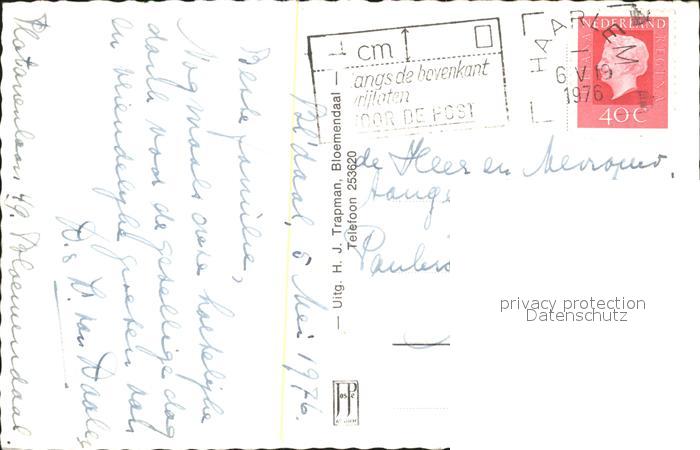 Bl'daal, 5 Mei 1976.
Beste familie,
Nog maals onze hartelijke
dank voor de gezellige dag
en vriendelijke groeten van
H. van Daalen
49 Bloemendaal.
— Uitg. H. J. Trapman, Bloemendaal —
Telefoon 253620
cm
angs de bovenkant
vrijlaten
VOOR DE POST
HAARLEM
6 V 19
1976
NEDERLAND
JULIANA REGINA
40 C
de Heer en Mevrouw
JosPe
privacy protection
Datenschutz